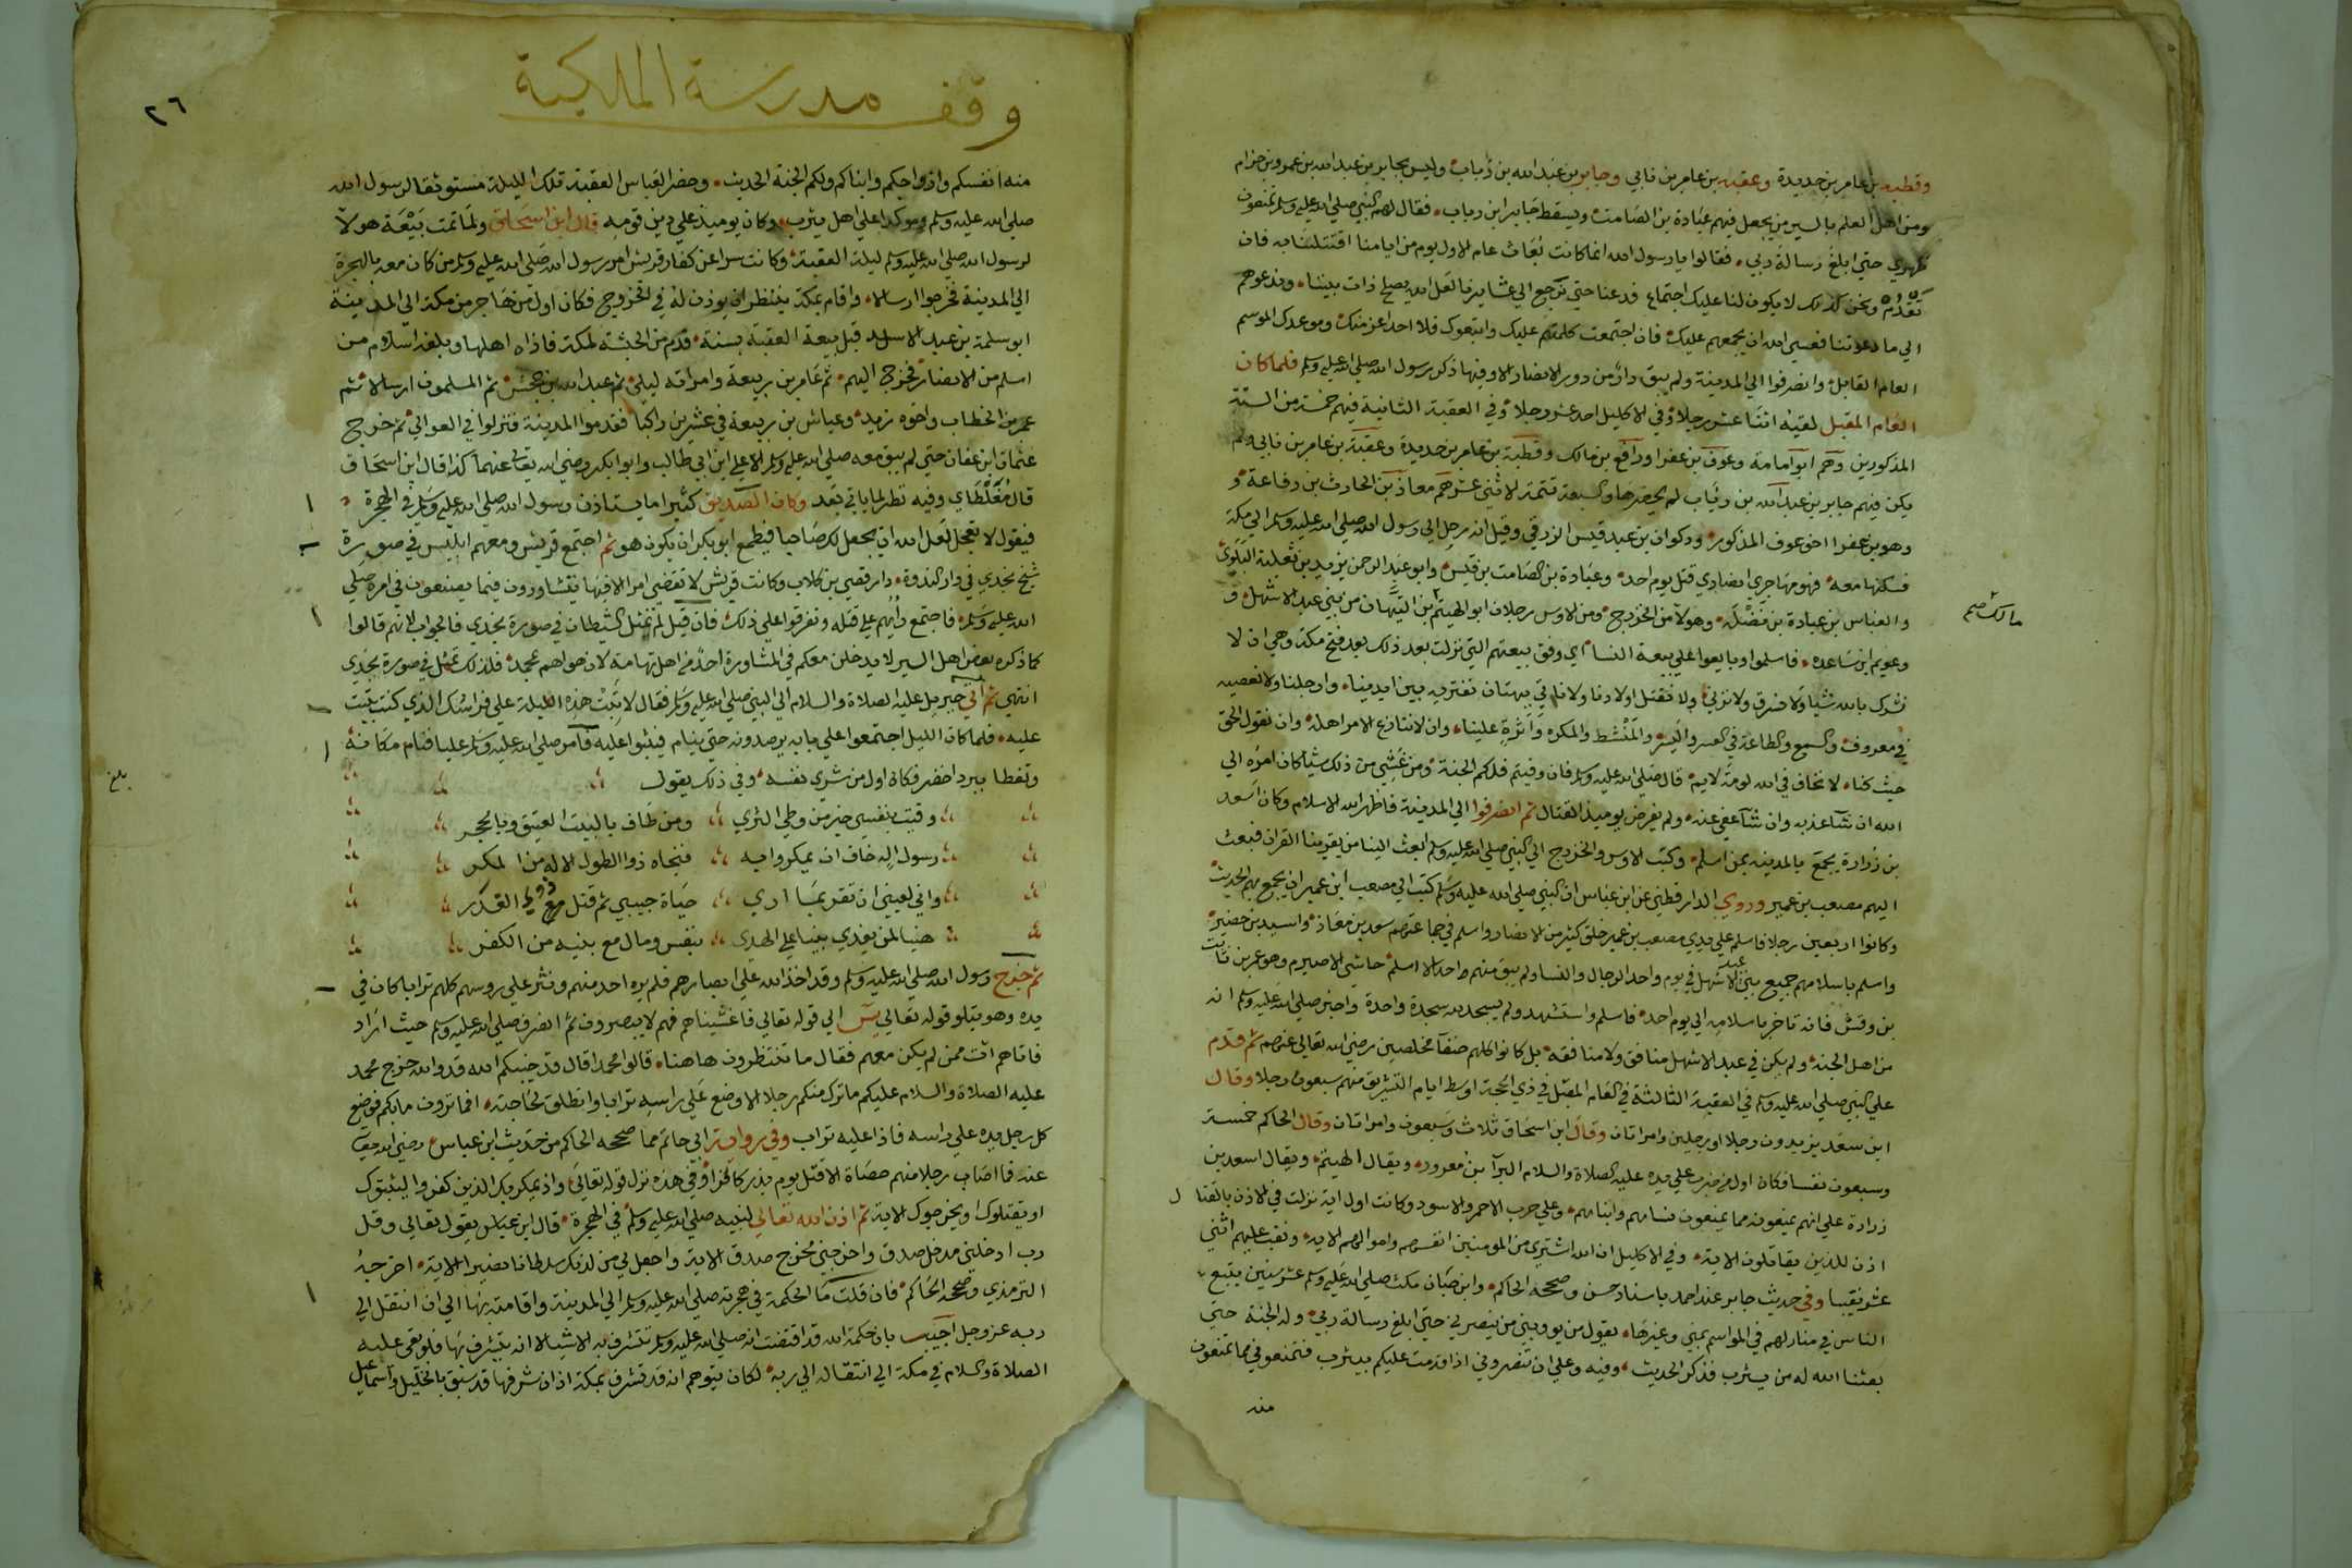 وقطبه بن عامر بن حديدة وعقبه بن عامر بن نابي وجابر بن عبد الله بن رياب وليس بجابر بن عبد الله بن عمرو بن حرام
ومن اهل العلم بالسير من يجعل فيهم عبادة بن الصامت ويسقط جابر ابن رياب فقال لهم النبي صلى الله عليه وسلم تمنعون
ظهري حتي ابلغ رسالة ربي فقالوا يا رسول الله انما كانت بعاث عام الاول يوم من ايامنا اقتتلنا به فان
تقدم ونحن كذلك لا يكون لنا عليك اجتماع فدعنا حتي نرجع الي عشايرنا لعل الله يصلح ذات بيننا وندعوهم
الي ما دعوتنا فعسي الله ان يجمعهم عليك فان اجتمعت كلمتهم عليك واتبعوك فلا احد اعز منك وموعدك الموسم
العام القابل وانصرفوا الي المدينة ولم يبق دار من دور الانصار الا وفيها ذكر رسول الله صلى الله عليه وسلم فلما كان
العام المقبل لقيه اثنا عشر رجلا وفي الاكليل احد عشر رجلا وفي العقبة الثانية فيهم خمسة من الستة
المذكورين وهم ابو امامة وعوف بن عفرا ورافع بن مالك وقطبة بن عامر بن حديدة وعقبة بن عامر بن نابي ولم
يكن فيهم جابر بن عبد الله بن رياب لم يحضرها والسبعة تتمة الاثني عشر هم معاذ بن الحارث بن رفاعة و
وهو بن عفرا اخو عوف المذكور وذكوان بن عبد قيس الزرقي وقيل انه رحل الي رسول الله صلى الله عليه وسلم الي مكة
فسكنها معه فهو مهاجري انصاري قتل يوم احد وعبادة بن الصامت بن قيس وابو عبد الرحمن يزيد بن ثعلبة البلوي
والعباس بن عبادة بن نضله وهولا من الخزرج ومن الاوس رجلان ابو الهيثم بن التيهان من بني عبد الاشهل و
وعويم ابن ساعده فاسلموا وبايعوا علي بيعة النسا اي وفق بيعتهم التي نزلت بعد ذلك بعد فتح مكة وهي ان لا
نشرك بالله شيا ولا نسرق ولا نزني ولا نقتل اولادنا ولا ناتي ببهتان نفتريه بين ايدينا وارجلنا ولا نعصيه
في معروف والسمع والطاعة في العسر واليسر والمنشط والمكره واثرة علينا وان لا ننازع الامر اهله وان نقول الحق
حيث كنا لا نخاف في الله لومة لايم قال صلى الله عليه وسلم فان وفيتم فلكم الجنة ومن غشي من ذلك شيا كان امره الي
الله ان شا عذبه وان شا عفي عنه ولم يفرض يوميذ القتال ثم انصرفوا الي المدينة فاظهر الله الاسلام وكان اسعد
بن زرارة يجمع بالمدينه بمن اسلم وكتب الاوس والخزرج الي النبي صلى الله عليه وسلم ابعث الينا من يقرينا القران فبعث
اليهم مصعب بن عمير وروي الدارقطني عن ابن عباس ان النبي صلى الله عليه وسلم كتب الي مصعب ابن عمير ان يجمع بهم الحديث
وكانوا اربعين رجلا فاسلم علي يدي مصعب بن عمير خلق كثير من الانصار واسلم في جماعتهم سعد بن معاذ واسيد بن حضير
واسلم باسلامهم جميع بني عبد الاشهل في يوم واحد الرجال والنسا ولم يبق منهم احد الا اسلم حاشي الاصيرم وهو عمرو بن ثابت
بن وقش فانه تاخر باسلامه الي يوم احد فاسلم واستشهد ولم يسجد لله سجدة واحدة واخبر صلى الله عليه وسلم انه
من اهل الجنة ولم يكن في عبد الاشهل منافق ولا منافقة بل كانوا كلهم حنفا مخلصين رضي الله تعالي عنهم ثم قدم
علي النبي صلى الله عليه وسلم في العقبة الثالثة في العام المقبل في ذي الحجة اوسط ايام التشريق منهم سبعون رجلا وقال
ابن سعد يزيدون رجلا او رجلين وامراتان وقال ابن اسحاق ثلاث وسبعون وامراتان وقال الحاكم خمسة
وسبعون نفسا فكان اول من ضرب علي يده عليه الصلاة والسلام البرآ بن معرور ويقال الهيثم ويقال اسعد بن
زرارة علي انهم يمنعونه مما يمنعون نساهم وابناهم وعلي حرب الاحمر والاسود وكانت اول اية نزلت في الاذن بالقتا ل
اذن للذين يقاتلون الاية وفي الاكليل ان الله اشتري من المومنين انفسهم واموالهم الايه ونقب عليهم اثني
عشر نقيبا وفي حديث جابر عند احمد باسناد حسن وصححه الحاكم وابن حبان مكث صلى الله عليه وسلم عشر سنين يتبع
الناس في منازلهم في المواسم بمني وغيرها يقول من يوويني من ينصرني حتي ابلغ رسالة ربي وله الجنة حتي
بعثنا الله له من يثرب فذكر الحديث وفيه وعلي ان تنصروني اذا قدمت عليكم بيثرب فتمنعوني مما تمنعون
منه
مالك صح
٢٦
وقف مدرسة الملكية
منه انفسكم وازواجكم وابناكم ولكم الجنة الحديث وحضر العباس العقبة تلك الليلة مستوثقا لرسول الله
صلى الله عليه وسلم وموكدا علي اهل يثرب وكان يوميذ علي دين قومه قال ابن اسحاق ولما تمت بيعة هولا
لرسول الله صلى الله عليه وسلم ليلة العقبة وكانت سرا عن كفار قريش امر رسول الله صلى الله عليه وسلم من كان معه بالهجرة
الي المدينة فخرجوا ارسالا واقام بمكة ينتظر ان يوذن له في الخروج فكان اول من هاجر من مكة الي المدينة
ابو سلمة بن عبد الاسد قبل بيعة العقبة بسنة قدم من الحبشة لمكة فاذاه اهلها وبلغه اسلام من
اسلم من الانصار فخرج اليهم ثم عامر بن ربيعة وامراته ليلي ثم عبد الله بن جحش ثم المسلمون ارسالا ثم
عمر بن الخطاب واخوه زيد وعياش بن ربيعة في عشرين راكبا فقدموا المدينة فنزلوا في العوالي ثم خرج
عثمان ابن عفان حتي لم يبق معه صلى الله عليه وسلم الا علي ابن ابي طالب وابو بكر رضي الله تعالي عنهما كذا قال ابن اسحاق
قال مغلطاي وفيه نظر لما ياتي بعد وكان الصديق كثيرا ما يستاذن رسول الله صلى الله عليه وسلم في الهجرة
فيقول لا تعجل لعل الله ان يجعل لك صاحبا فيطمع ابو بكر ان يكون هو ثم اجتمع قريش ومعهم ابليس في صورة
شيخ نجدي في دار الندوة دار قصي بن كلاب وكانت قريش لا تقضي امرا الا فيها يتشاورون فيما يصنعون في امره صلي
الله عليه وسلم فاجتمع رايهم علي قتله وتفرقوا علي ذلك فان قيل لم تمثل الشيطان في صورة نجدي فالجواب لانهم قالوا
كما ذكره بعض اهل السير لا يدخلن معكم في المشاورة احد من اهل تهامة لان هواهم مع محمد فلذلك تمثل في صورة نجدي
انتهي ثم اتي جبريل عليه الصلاة والسلام الي النبي صلى الله عليه وسلم فقال لا تبت هذه الليلة علي فراشك الذي كنت تبيت
عليه فلما كان الليل اجتمعوا علي بابه يرصدونه حتي ينام فيثبوا عليه فامر صلى الله عليه وسلم عليا فنام مكانه
وتغطا ببرد اخضر فكان اول من شري نفسه وفي ذلك يقول
وقيت بنفسي خير من وطي الثري ومن طاف بالبيت العتيق وبالحجر
رسول اله خاف ان يمكروا به فنجاه ذوا الطول الاله من المكر
هنيا لمن يفدي نبيا علي الهدي بنفس ومال مع بنيه من الكفر
ثم خرج رسول الله صلى الله عليه وسلم وقد اخذ الله علي ابصارهم فلم يره احد منهم ونثر علي روسهم كلهم ترابا كان في
يده وهو يتلو قوله تعالي يس الي قوله تعالي فاغشيناهم فهم لا يبصرون ثم انصرف صلى الله عليه وسلم حيث اراد
فاتاهم ات ممن لم يكن معهم فقال ما تنتظرون هاهنا قالوا محمدا قال قد خيبكم الله قد والله خرج محمد
عليه الصلاة والسلام عليكم ما ترك منكم رجلا الا وضع علي راسه ترابا وانطلق لحاجته افما ترون ما بكم فوضع
كل رجل يده علي راسه فاذا عليه تراب وفي رواية ابي حاتم مما صححه الحاكم من حديث ابن عباس رضي الله تعالي
عنه فما اصاب رجلا منهم حصاة الا قتل يوم بدر كافرا وفي هذه نزل قوله تعالي واذ يمكر بك الذين كفروا ليثبتوك
او يقتلوك او يخرجوك الاية ثم اذن الله تعالي لنبيه صلى الله عليه وسلم في الهجرة قال ابن عباس بقول تعالي وقل
رب ادخلني مدخل صدق واخرجني مخرج صدق الاية واجعل لي من لدنك سلطانا نصيرا الاية اخرجه
الترمذي وصححه الحاكم فان قلت ما الحكمة في هجرته صلى الله عليه وسلم الي المدينة واقامته بها الي ان انتقل الي
ربه عز وجل اجيب بان حكمة الله قد اقتضت انه صلى الله عليه وسلم تتشرف به الاشيا لا انه يتشرف بها فلو بقي عليه
الصلاة والسلام في مكة الي انتقاله الي ربه لكان يتوهم انه قد تشرف بمكة اذ ان شرفها قد سبق بالخليل واسماعيل
بلغ